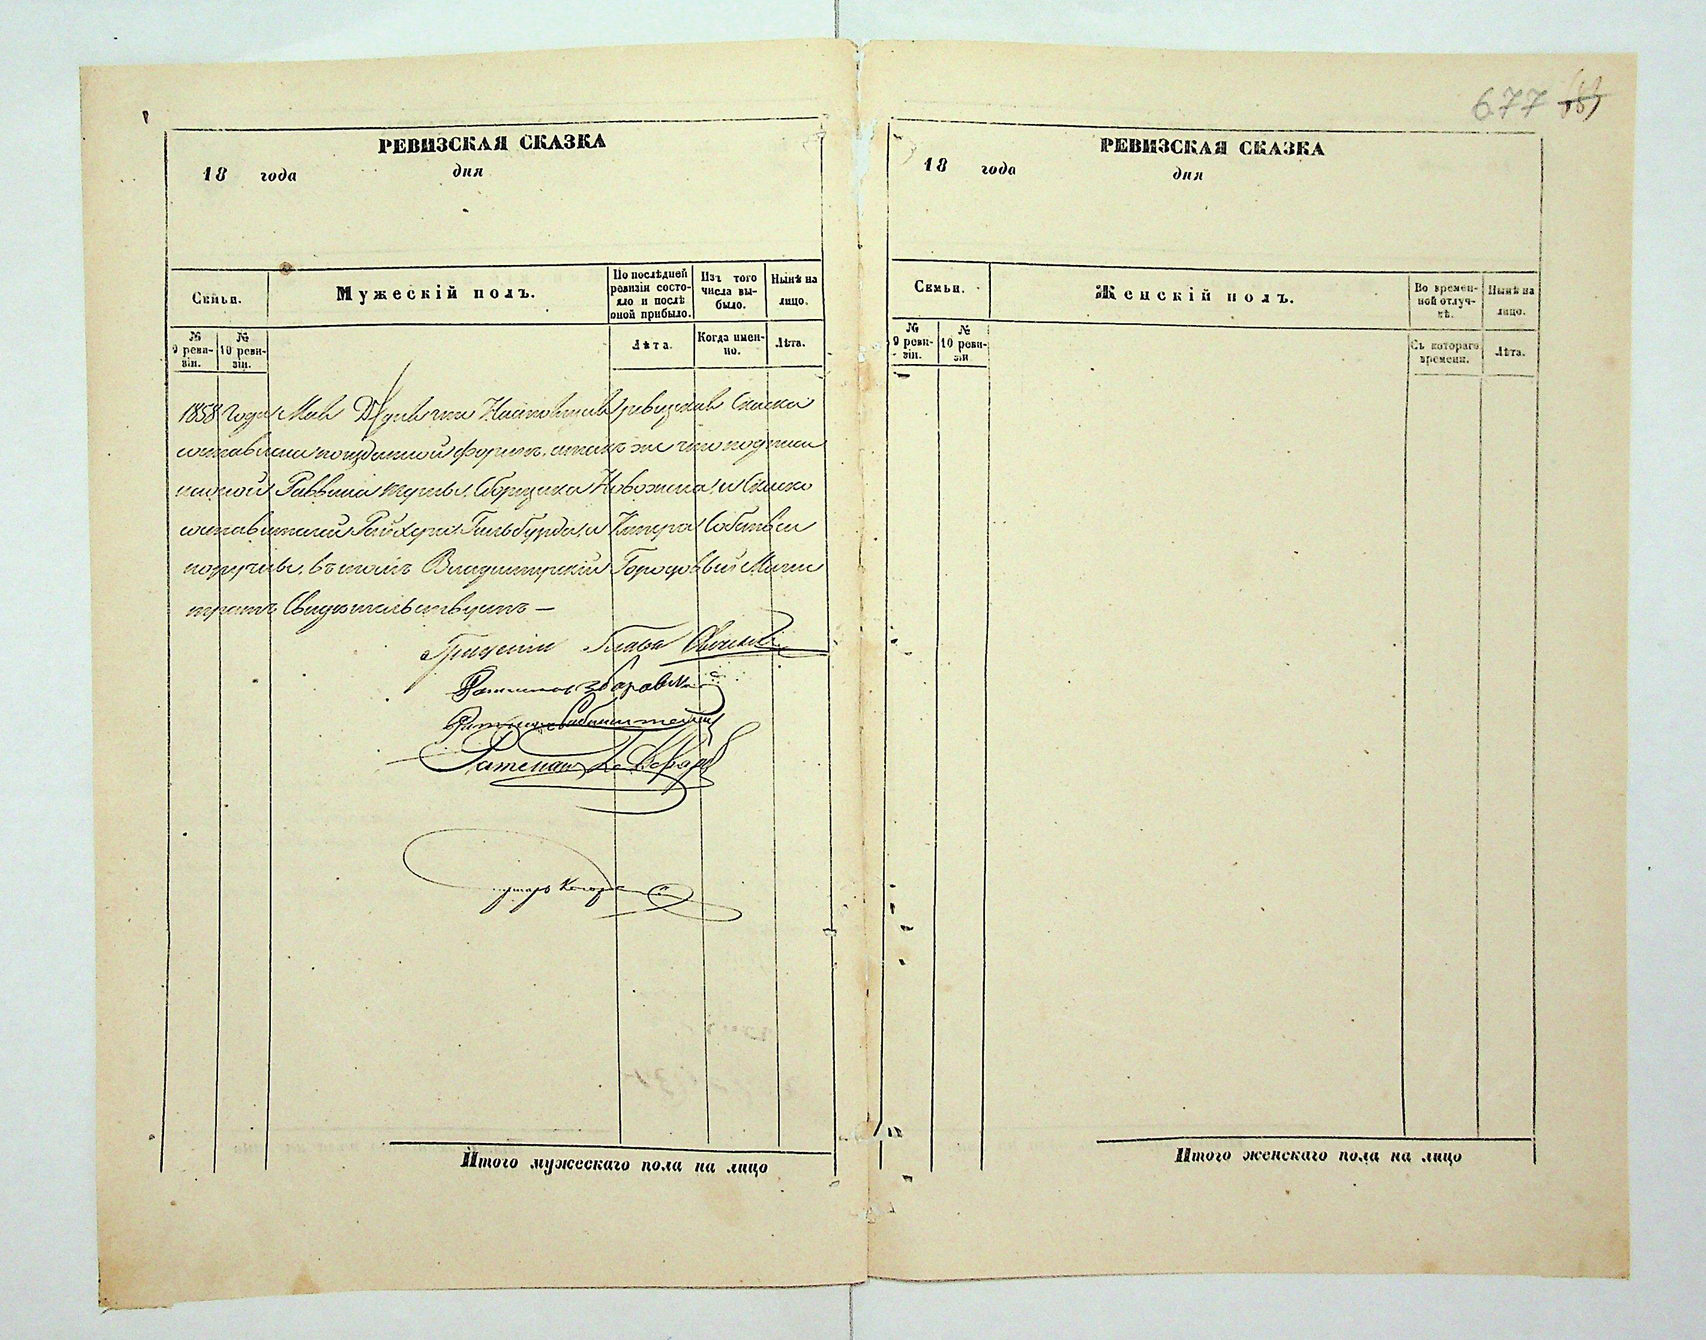 677
РЕВИЗСКАЯ СКАЗКА
18 года дня
Семьи.
Мужескій полъ.
По послѣдней ревизіи состояло и послѣ оной прибыло.
Изъ того числа выбыло.
Нынѣ на лицо.
№ 9 ревизіи.
№ 10 ревизіи.
Лѣта.
Когда именно.
Лѣта.
1858 года Мая дня что Настоящая ревизская Сказка
составлена по изданной формѣ, а такъ же что подписи
Раввина Сборщика и Сказко
составителей Гильбурда и
поручны, въ томъ Владимирскій Городовый Маги
стратъ Свидѣтельствуетъ —
Глава
Ратманъ
Ратманъ
Ратманъ
Итого мужескаго пола на лицо
РЕВИЗСКАЯ СКАЗКА
18 года дня
Семьи.
Женскій полъ.
Во временной отлучкѣ.
Нынѣ на лицо.
№ 9 ревизіи.
№ 10 ревизіи
Съ котораго времени.
Лѣта.
Итого женскаго пола на лицо